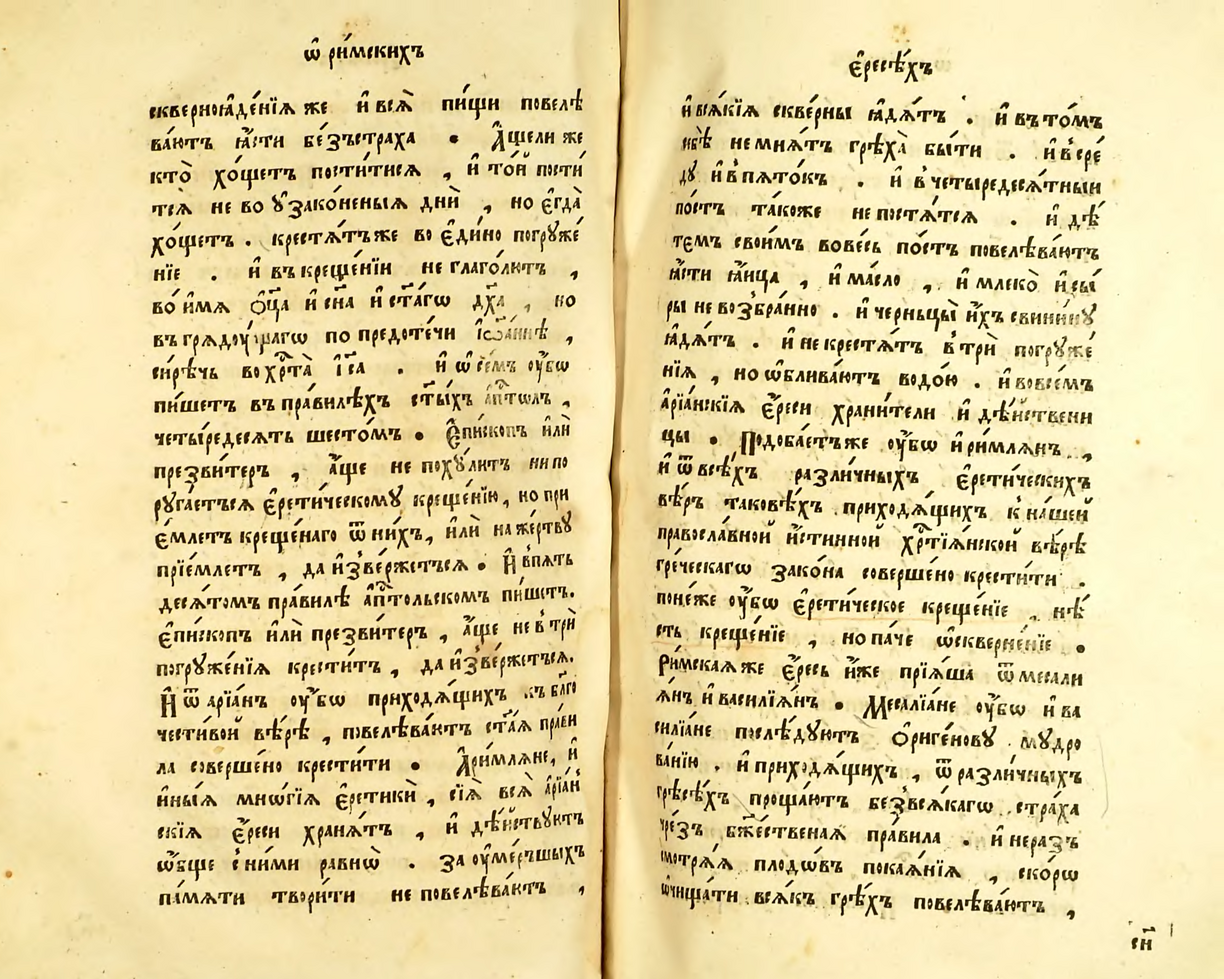 ѡ҆ ри́мскихъ
скверноꙗде́нїѧ же и҆ всѧ̀ пи́щи повелѣ
ва́ютъ ꙗ҆́сти безъстраха . А҆́щели же
кто̀ хо́щетъ пости́тисѧ , и҆ то́й пости́
тсѧ не во ᲂу҆зако́неныѧ дни̑ , но є҆гда̀
хо́щетъ . крестѧ́тъже во є҆ди́но погруже́
нїе . и҆ въ креще́нїи не глаго́лютъ ,
во и҆́мѧ ѻ҆ц҃а и҆ сн҃а и҆ ст҃а́гѡ дх҃а , но
въ грѧдꙋ́щаго по предоте́чи і҆ѡа́ннѣ ,
сирѣ́чь во хрⷭ҇та̀ і҆і҃са . и҆ ѡ҆ се́мъ ᲂу҆́бѡ
пи́шетъ въ пра́вилѣхъ ст҃ы́хъ а҆пⷭ҇толъ ,
четы́редесѧть шесто́мъ . Є҆пи́скопъ и҆лѝ
презви́теръ , а҆́ще не похꙋ́литъ ни по
рꙋга́етъсѧ є҆рети́ческомꙋ креще́нїю , но прї
е́млетъ креще́наго ѿ ни́хъ , и҆лѝ на же́ртвꙋ
прїе́млетъ , да и҆зве́ржетъсѧ . И҆ в пѧть
десѧ́томъ пра́вилѣ а҆пⷭ҇тольскомъ пи́шетъ .
є҆пи́скопъ и҆лѝ презви́теръ , а҆́ще не в трѝ
погрꙋже́нїѧ крести́тъ , да и҆зве́ржетъсѧ .
И҆ ѿ арїа́нъ ᲂу҆́бѡ приходѧ́щихъ къ бл҃го
чести́вой вѣ́рѣ , повелѣва́ютъ ст҃а́ѧ пра́ви
ла соверше́но крести́ти . А҆ ри́млѧне , и҆
и҆ны́ѧ мнѡ́гїѧ є҆ретикѝ , сїѧ̑ всѧ̑ а҆рїа́н
скїѧ є҆́реси хранѧ́тъ , и҆ дѣ́йствꙋютъ
ѡ҆́бще с ни́ми равнѡ̀ . за ᲂу҆ме́ршыхъ
па́мѧти твори́ти не повелѣва́ютъ ,
є҆́ресѣхъ
и҆ всѧ́кїѧ скве́рны ꙗ҆дѧ́тъ . и҆ в то́мъ
себѣ̀ не мнѧ́тъ грѣха̀ бы́ти . и҆ в сре́
дꙋ и҆ в пѧто́къ . и҆ в четыредесѧ́тныи
по́стъ та́коже не постѧ́тсѧ . и҆ дѣ́
темъ свои́мъ во ве́сь по́стъ повелѣва́ютъ
ꙗ҆́сти ꙗ҆́ица , и҆ ма́сло , и҆ млеко̀ и҆ сы́
ры не возбра́нно . и҆ черньцы̀ и҆́хъ свини́нꙋ
ꙗ҆дѧ́тъ . и҆ не крестѧ́тъ в трѝ погрꙋже́
нїѧ , но ѡ҆блива́ютъ водо́ю . и҆ во все́мъ
а҆рїа́нскїѧ є҆́реси храни́тели и҆ дѣ́йствени
цы . Подоба́етъже ᲂу҆́бѡ и҆ ри́млѧнъ ,
и҆ ѿ всѣ́хъ разли́чныхъ є҆рети́ческихъ
вѣ́ръ таковѣ́хъ приходѧ́щихъ к на́шей
правосла́вной и҆́стинной хрⷭ҇тїѧ́нской вѣ́рѣ
гре́ческагѡ зако́на соверше́но крести́ти .
поне́же ᲂу҆́бѡ є҆рети́ческое креще́нїе , нѣ́
сть креще́нїе , но па́че ѡ҆скверне́нїе .
Ри́мскаѧже є҆́ресь и҆́же прїѧ́ша ѿ месали
ѧ́нъ и҆ василїѧ́нъ . Месалїа́не ᲂу҆́бѡ и҆ ва
силїа́не послѣ́дꙋютъ Ѻ҆риге́новꙋ мꙋдро
ва́нїю . и҆ приходѧ́щихъ , ѿ разли́чныхъ
грѣсѣ́хъ проща́ютъ без всѧ́кагѡ стра́ха
чре́зъ бж҃е́ственаѧ пра́вила . и҆ не раз
смотрѧ́ѧ плодо́въ покаѧ́нїѧ , ско́рѡ
ѡ҆чища́ти всѧ́къ грѣ́хъ повелѣва́ютъ ,
си҃